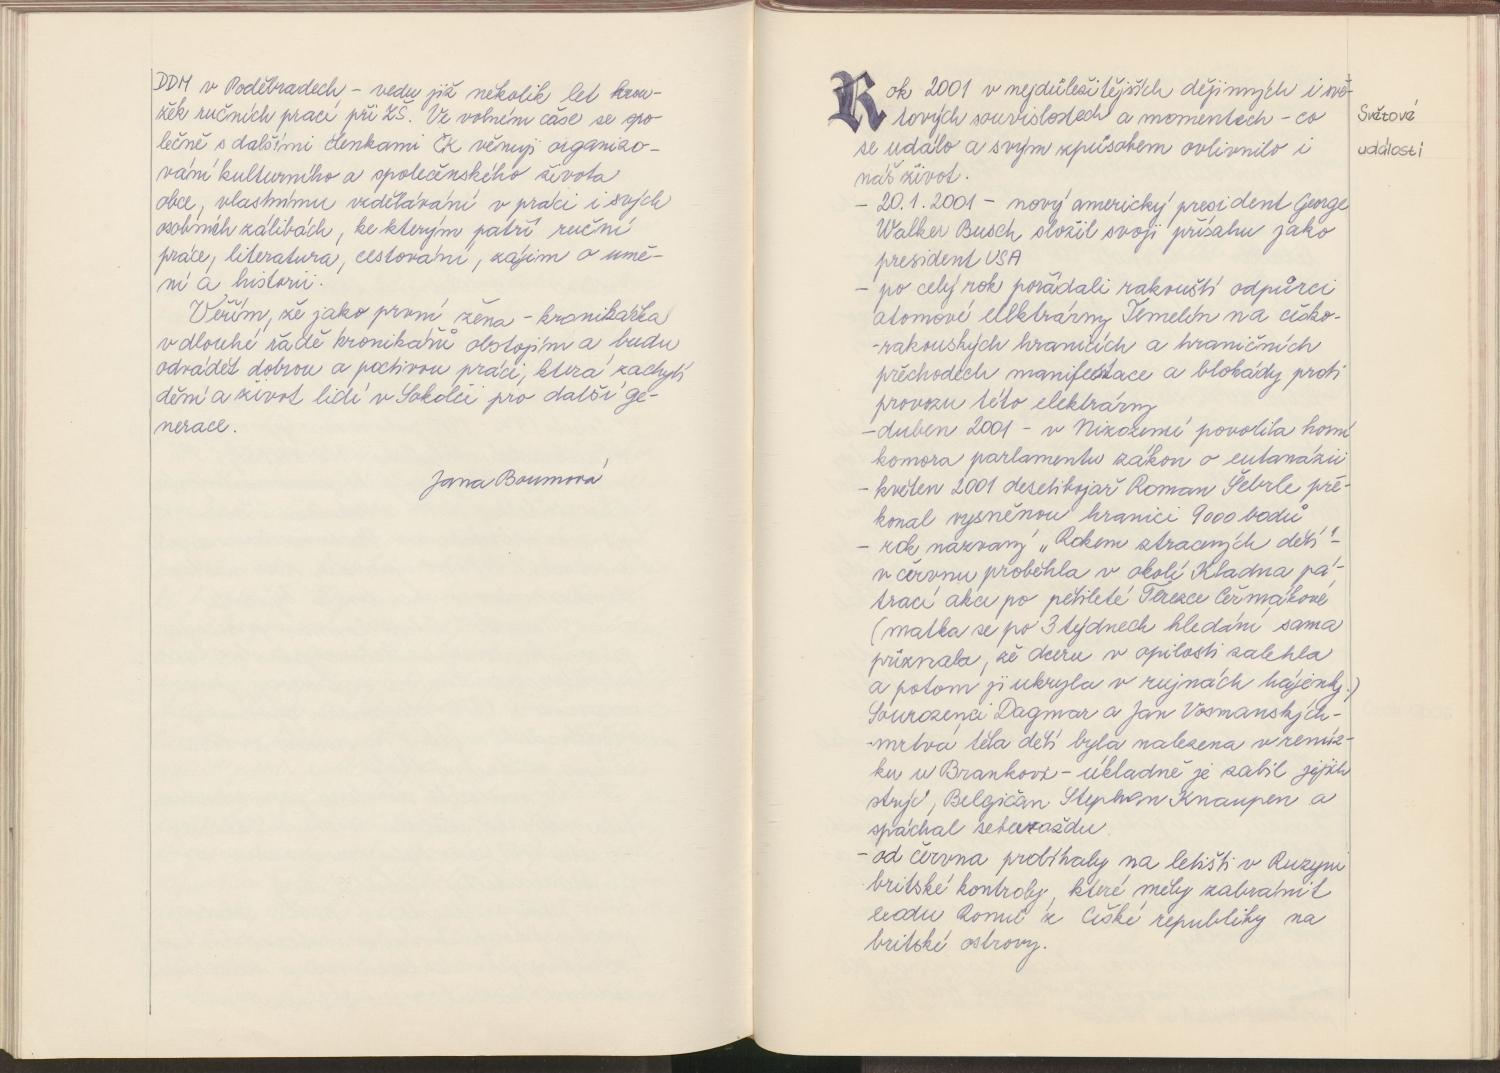 DDM v Poděbradech - vedu již několik let krou-
žek ručních prací při ZŠ. Ve volném čase se spo-
lečně s dalšími členkami ČK věnuji organizo-
vání kulturního a společenského života
obce, vlastnímu vzdělávání v práci i svých
osobních zálibách, ke kterým patří ruční
práce, literatura, cestování, zájem o umě-
ní a historii.
Věřím, že jako první žena - kronikářka
v dlouhé řadě kronikářů obstojím a budu
odvádět dobrou a poctivou práci, která zachytí
dění a život lidí v Sokolči pro další ge-
nerace.
Jana Boumová
Rok 2001 v nejdůležitějších dějinných i svě-
tových souvislostech a momentech - co
se událo a svým způsobem ovlivnilo i
náš život.
Světové
události
- 20.1.2001 - nový americký president George
Walker Busch složil svoji přísahu jako
president USA
- po celý rok pořádali rakouští odpůrci
atomové elektrárny Temelín na česko-
-rakouských hranicích a hraničních
přechodech manifestace a blokády proti
provozu této elektrárny
- duben 2001 - v Nizozemí povolila horní
komora parlamentu zákon o eutanázii
- květen 2001 desetibojař Roman Šebrle pře-
konal vysněnou hranici 9000 bodů
- rok nazvaný "Rokem ztracených dětí" -
v červnu proběhla v okolí Kladna pá-
trací akce po pětileté Terezce Čermákové
(matka se po 3 týdnech hledání sama
přiznala, že dceru v opilosti zalehla
a potom ji ukryla v rujnách hájenky.)
Sourozenci Dagmar a Jan Vosmanských -
-mrtvá těla dětí byla nalezena v remíz-
ku u Brankovi - úkladně je zabil jejich
strýc, Belgičan Stephan Knaupen a
spáchal sebevraždu.
- od června probíhaly na letišti v Ruzyni
britské kontroly, které měly zabránit
exodu Romů z České republiky na
britské ostrovy.